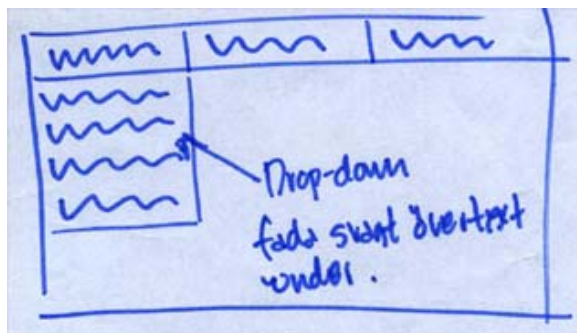 Drop-down
fada svant övertext
under.